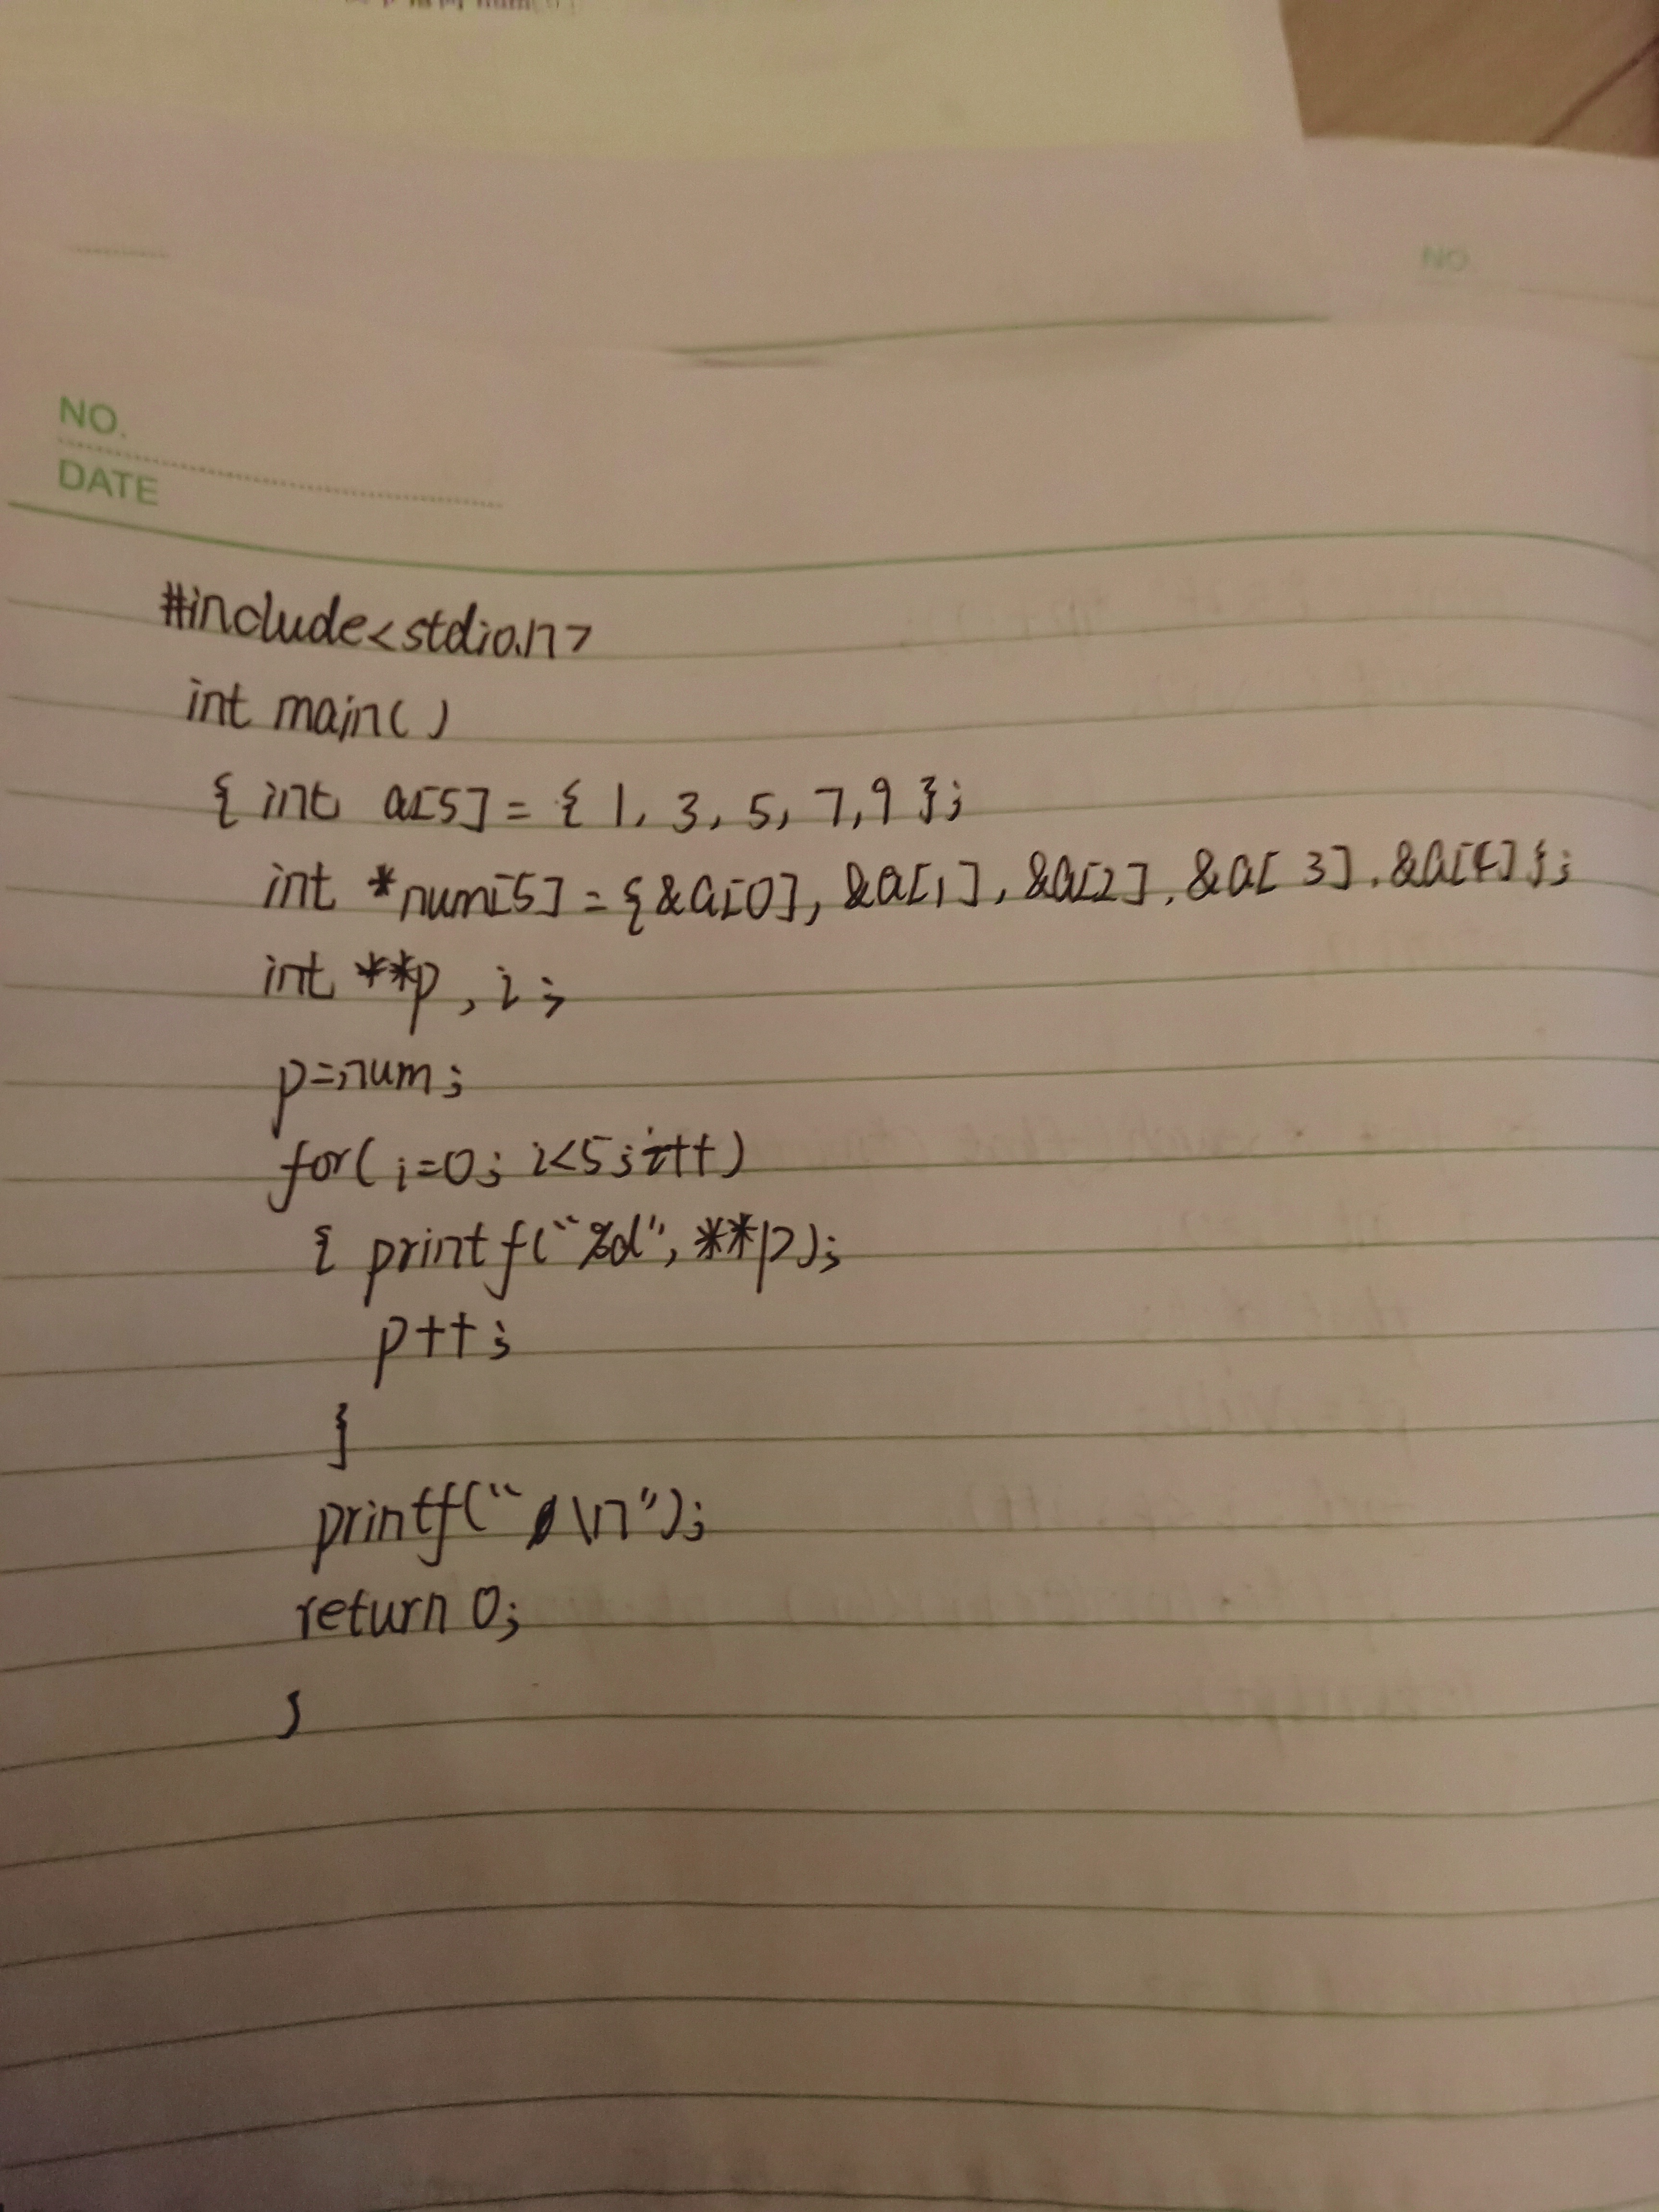 NO.
NO.
DATE
#include<stdio.h>
int main()
{ int a[5]={ 1, 3, 5, 7,9 };
int *num[5]={&a[0], &a[1], &a[2], &a[3], &a[4]};
int **p, i;
p=num;
for(i=0; i<5;i++)
{ printf("%d", **p);
p++;
}
printf("\n");
return 0;
}